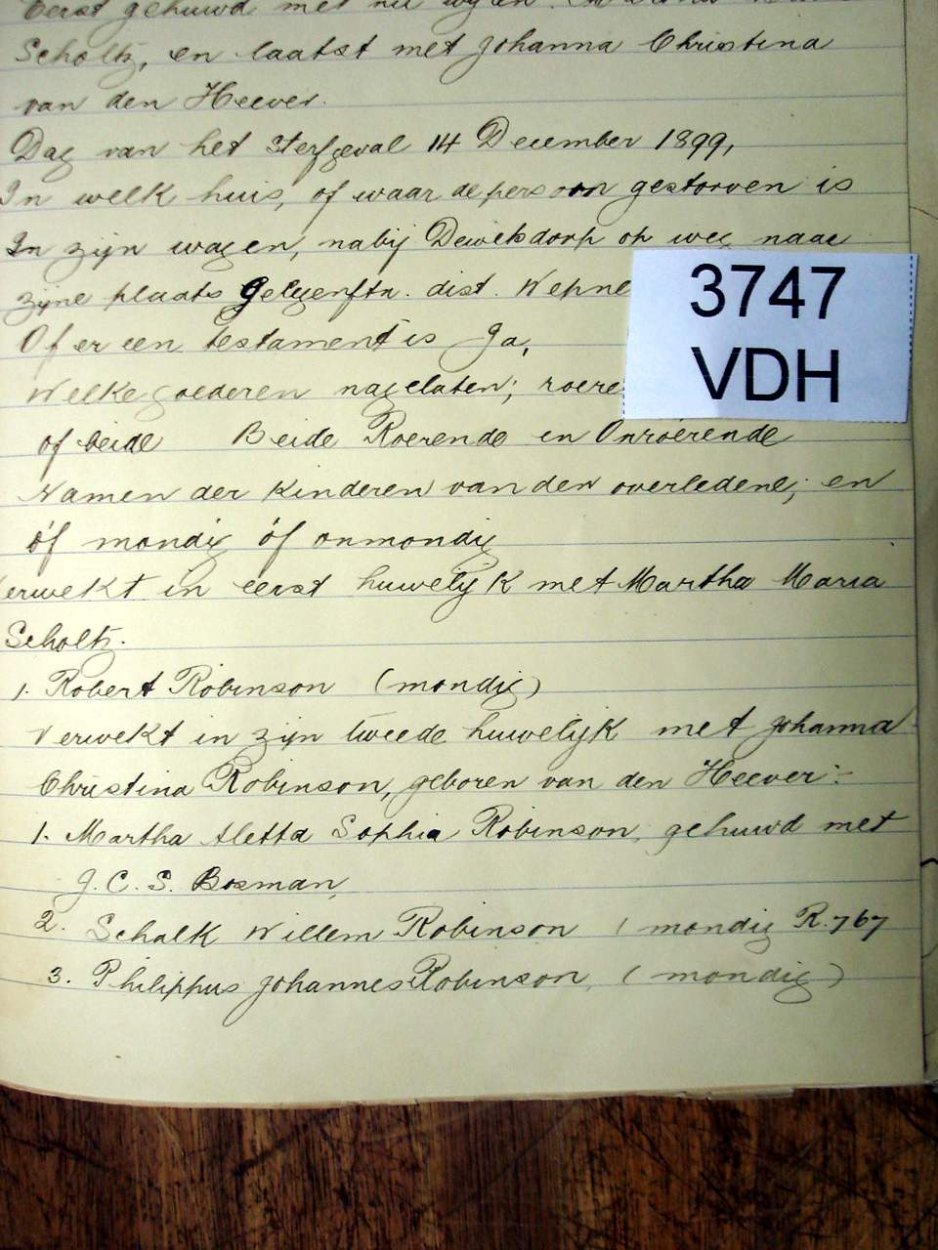 Eerst gehuwd met nu wylen
Scholtz, en laatst met Johanna Christina
van den Heever.
Dag van het Sterfgeval 14 December 1899,
In welk huis, of waar de persoon gestorven is
In zijn wagen, nabij Dewetsdorp op weg naar
zijne plaats dist. Wepne
Of er een testament is Ja,
Welke goederen nagelaten; roere
of beide Beide Roerende en Onroerende
Namen der Kinderen van den overledene; en
óf mondig óf onmondig
erwekt in eerst huwelijk met Martha Maria
Scholtz.
1. Robert Robinson (mondig)
Verwekt in zijn tweede huwelijk met Johanna
Christina Robinson, geboren van den Heever:-
1. Martha Aletta Sophia Robinson, gehuwd met
J. C. S. Bosman,
2. Schalk Willem Robinson ( mondig R.767
3. Philippus Johannes Robinson, (mondig)
3747
VDH